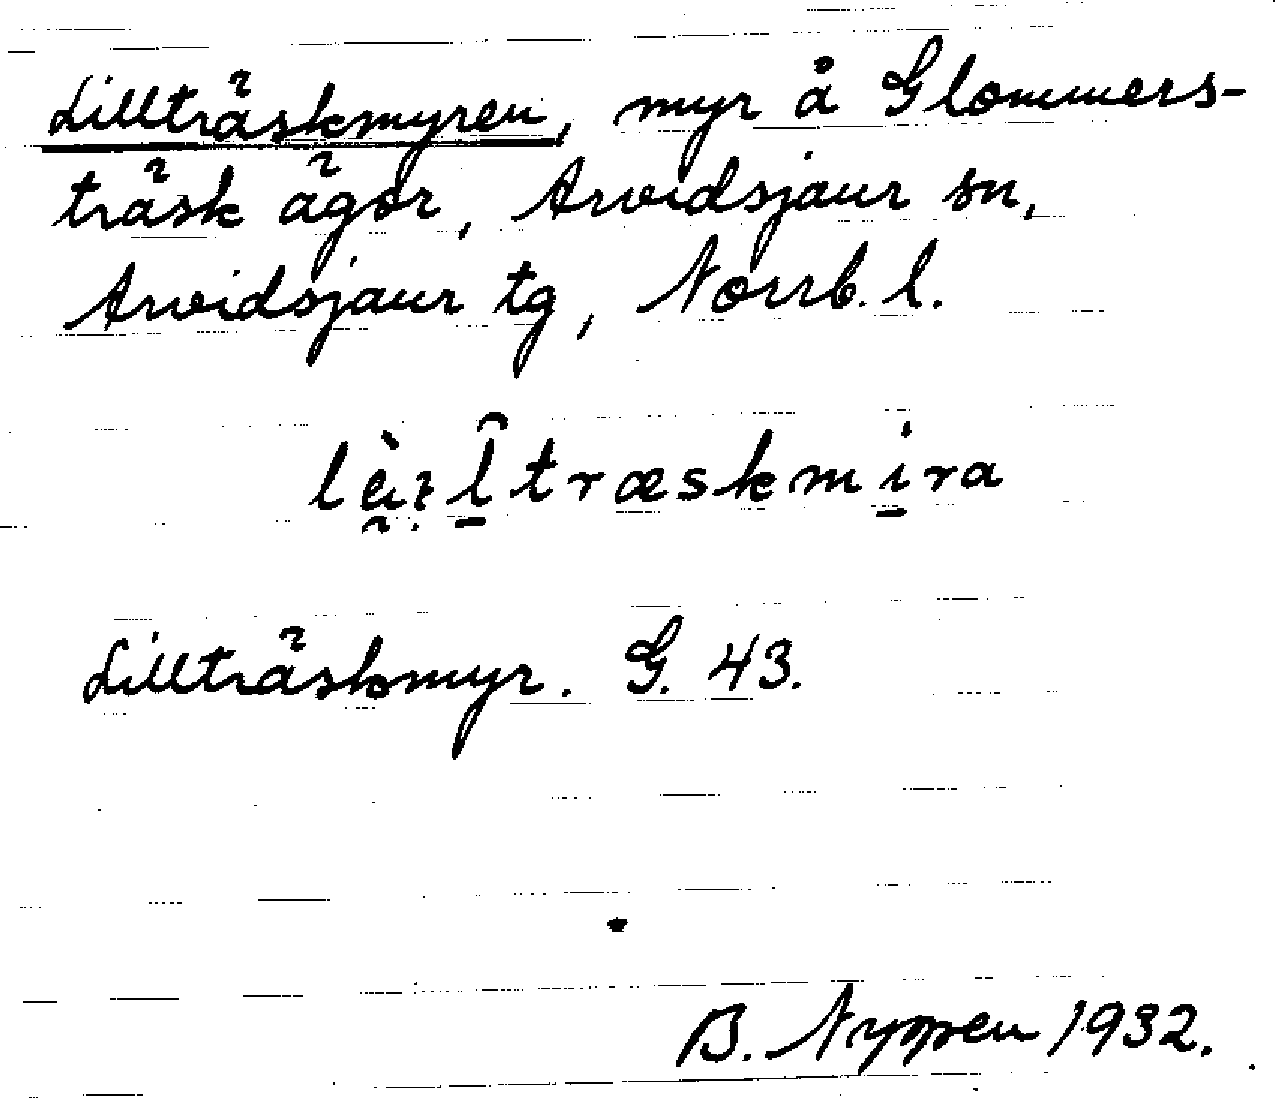 Lillträskmyren, myr å Glommers-
träsk ägor, Arvidsjaur sn,
Arvidsjaur tg, Norrb. l.
Lillträskmyr. G. 43.
B. Nyppen 1932.